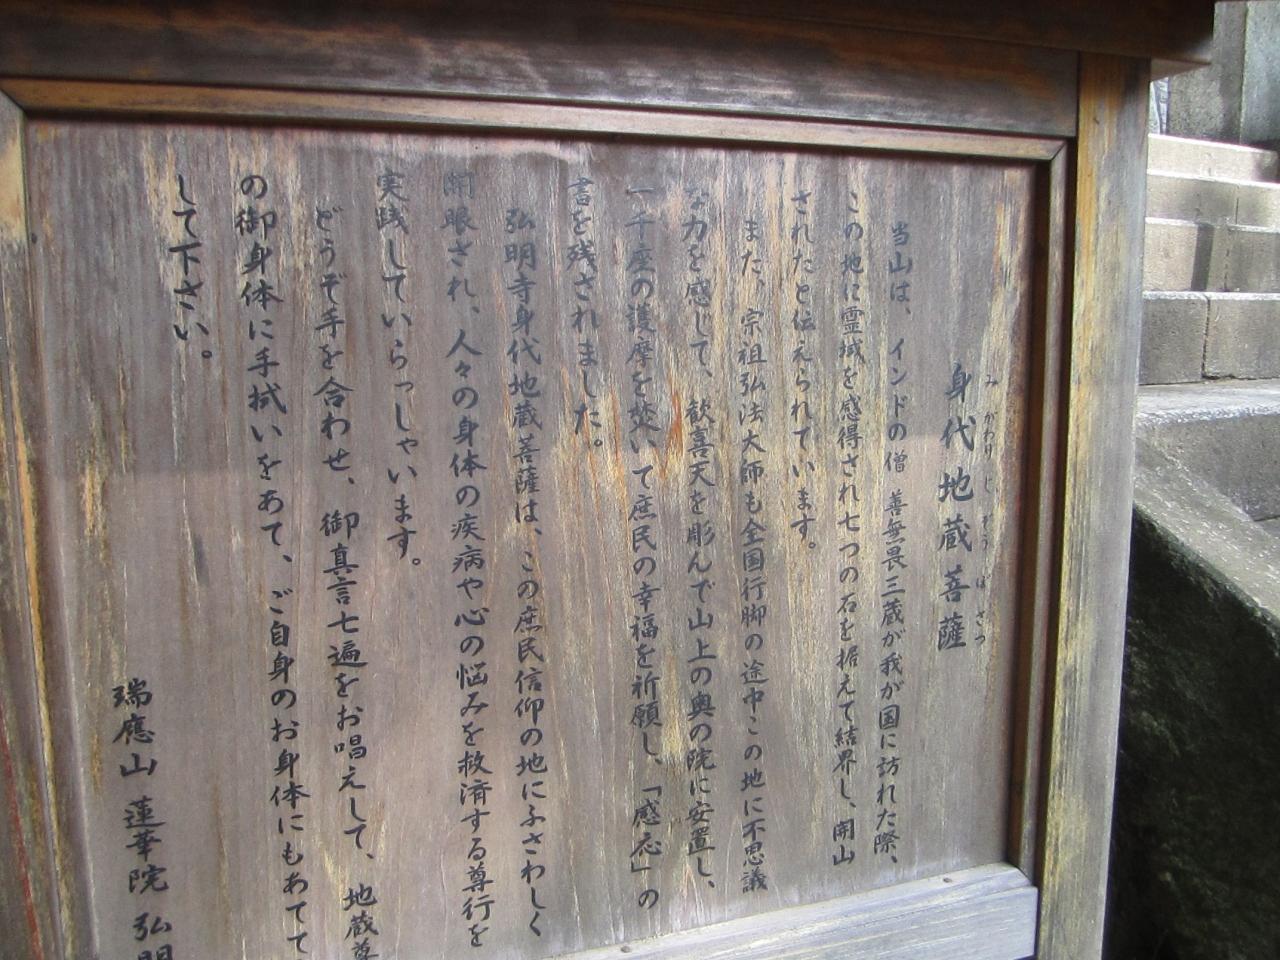 身代地蔵菩薩
みがわりじぞうぼさつ
当山は、インドの僧 善無畏三蔵が我が国に訪れた際、
この地に霊域を感得され七つの石を据えて結界し、開山
されたと伝えられています。
また、宗祖弘法大師も全国行脚の途中この地に不思議
な力を感じて、歓喜天を彫んで山上の奥の院に安置し、
一千座の護摩を焚いて庶民の幸福を祈願し、「感応」の
書を残されました。
弘明寺身代地蔵菩薩は、この庶民信仰の地にふさわしく
開眼され、人々の身体の疾病や心の悩みを救済する尊行を
実践していらっしゃいます。
どうぞ手を合わせ、御真言七遍をお唱えして、地蔵尊
の御身体に手拭いをあて、ご自身のお身体にもあてて
して下さい。
瑞應山 蓮華院 弘明